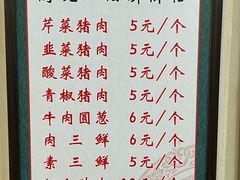 芹菜猪肉 5元/个
韭菜猪肉 5元/个
酸菜猪肉 5元/个
青椒猪肉 5元/个
牛肉圆葱 6元/个
肉三鲜 6元/个
素三鲜 5元/个